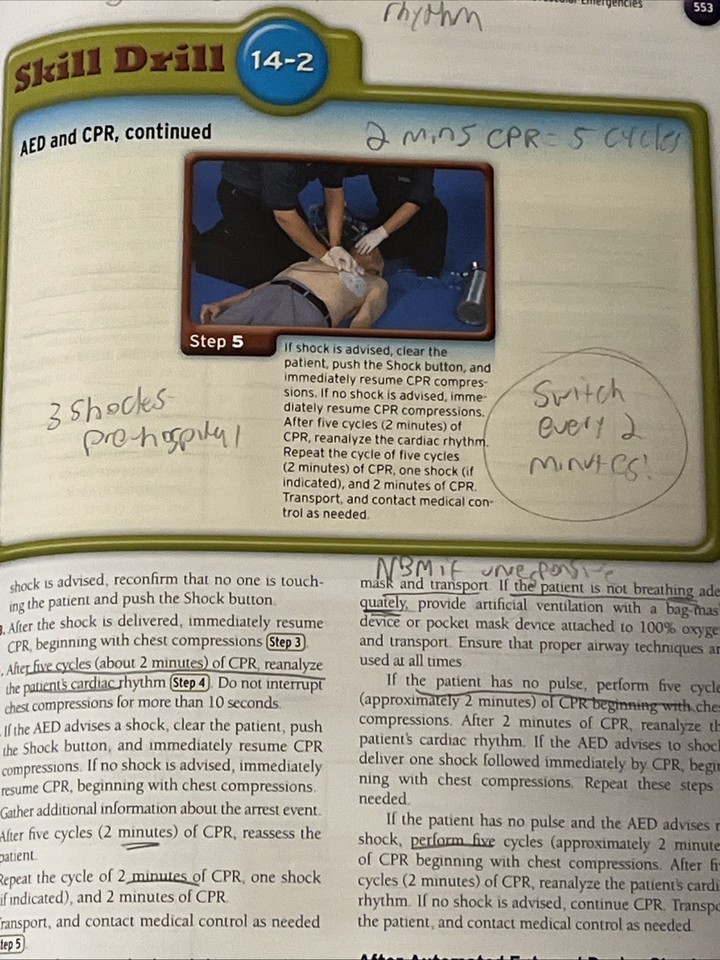 rhythm
Emergencies
553
Skill Drill 14-2
AED and CPR, continued
2 mins CPR = 5 cycles
Step 5
If shock is advised, clear the
patient, push the Shock button, and
immediately resume CPR compres-
sions. If no shock is advised, imme-
diately resume CPR compressions.
After five cycles (2 minutes) of
CPR, reanalyze the cardiac rhythm.
Repeat the cycle of five cycles
(2 minutes) of CPR, one shock (if
indicated), and 2 minutes of CPR.
Transport, and contact medical con-
trol as needed.
3 shocks-
prehospital
Switch
every 2
minutes!
shock is advised, reconfirm that no one is touch-
ing the patient and push the Shock button.
After the shock is delivered, immediately resume
CPR, beginning with chest compressions Step 3.
After five cycles (about 2 minutes) of CPR, reanalyze
the patient's cardiac rhythm Step 4. Do not interrupt
chest compressions for more than 10 seconds.
If the AED advises a shock, clear the patient, push
the Shock button, and immediately resume CPR
compressions. If no shock is advised, immediately
resume CPR, beginning with chest compressions.
Gather additional information about the arrest event.
After five cycles (2 minutes) of CPR, reassess the
patient.
Repeat the cycle of 2 minutes of CPR, one shock
(if indicated), and 2 minutes of CPR.
Transport, and contact medical control as needed
Step 5.
NBM if unresponsive
mask and transport. If the patient is not breathing ade
quately, provide artificial ventilation with a bag-mas
device or pocket mask device attached to 100% oxyge
and transport. Ensure that proper airway techniques ar
used at all times.
If the patient has no pulse, perform five cycle
(approximately 2 minutes) of CPR beginning with ches
compressions. After 2 minutes of CPR, reanalyze th
patient's cardiac rhythm. If the AED advises to shock
deliver one shock followed immediately by CPR, begin
ning with chest compressions. Repeat these steps
needed.
If the patient has no pulse and the AED advises n
shock, perform five cycles (approximately 2 minute
of CPR beginning with chest compressions. After fi
cycles (2 minutes) of CPR, reanalyze the patient's cardi
rhythm. If no shock is advised, continue CPR. Transpo
the patient, and contact medical control as needed.